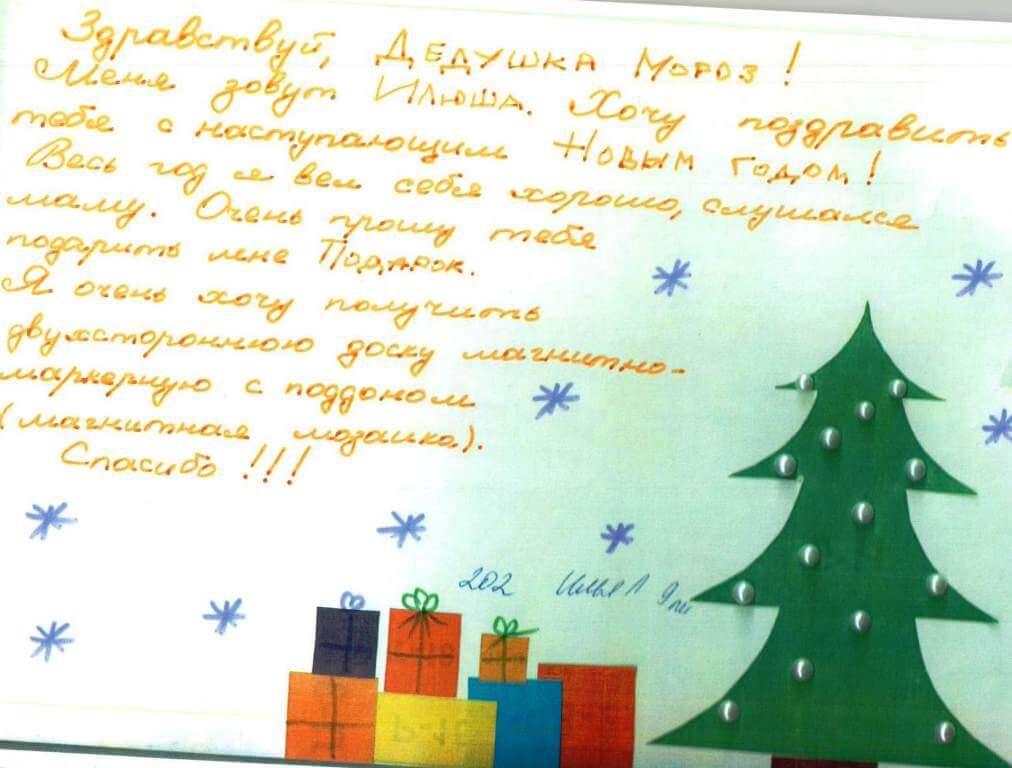 Здравствуй, ДЕДУШКА МОРОЗ!
Меня зовут ИЛЮША. Хочу поздравить
тебя с наступающим НОВЫМ ГОДОМ!
Весь год я вел себя хорошо, слушался
маму. Очень прошу тебя
подарить мне ПОДАРОК.
Я очень хочу получить
двухстороннюю доску магнитно-
маркерную с поддоном
(магнитная мозаика).
Спасибо!!!
202 Илья Л 9